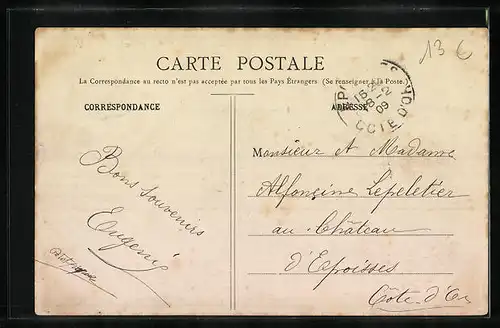 13 €
CARTE POSTALE
La Correspondance au recto n'est pas acceptée par tous les Pays Étrangers (Se renseigner à la Poste.)
CORRESPONDANCE
ADRESSE
CÔTE D'OR
09
Bons souvenirs
Eugénie
Monsieur et Madame
Alfonsine Lepeletier
au Château
d'Epoisses
Côte-d'Or